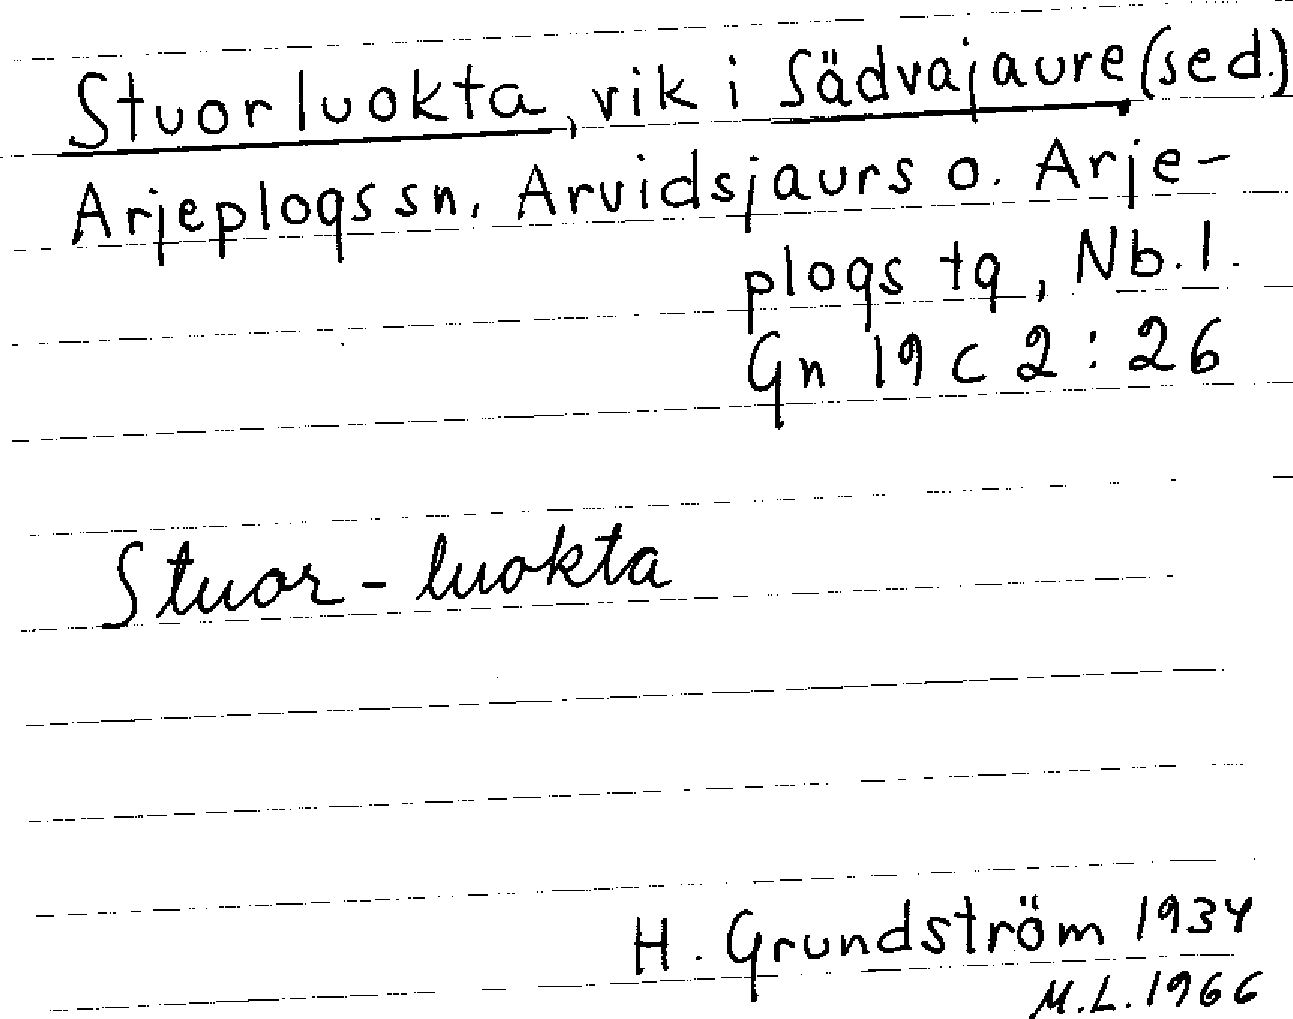 Stuorluokta, vik i Sädvajaure (sed.)
Arjeplogs sn, Arvidsjaurs o. Arje-
plogs tg, Nb.l.
Gn 19 c 2 : 26
Stuor-luokta
H. Grundström 1934
M.L. 1966